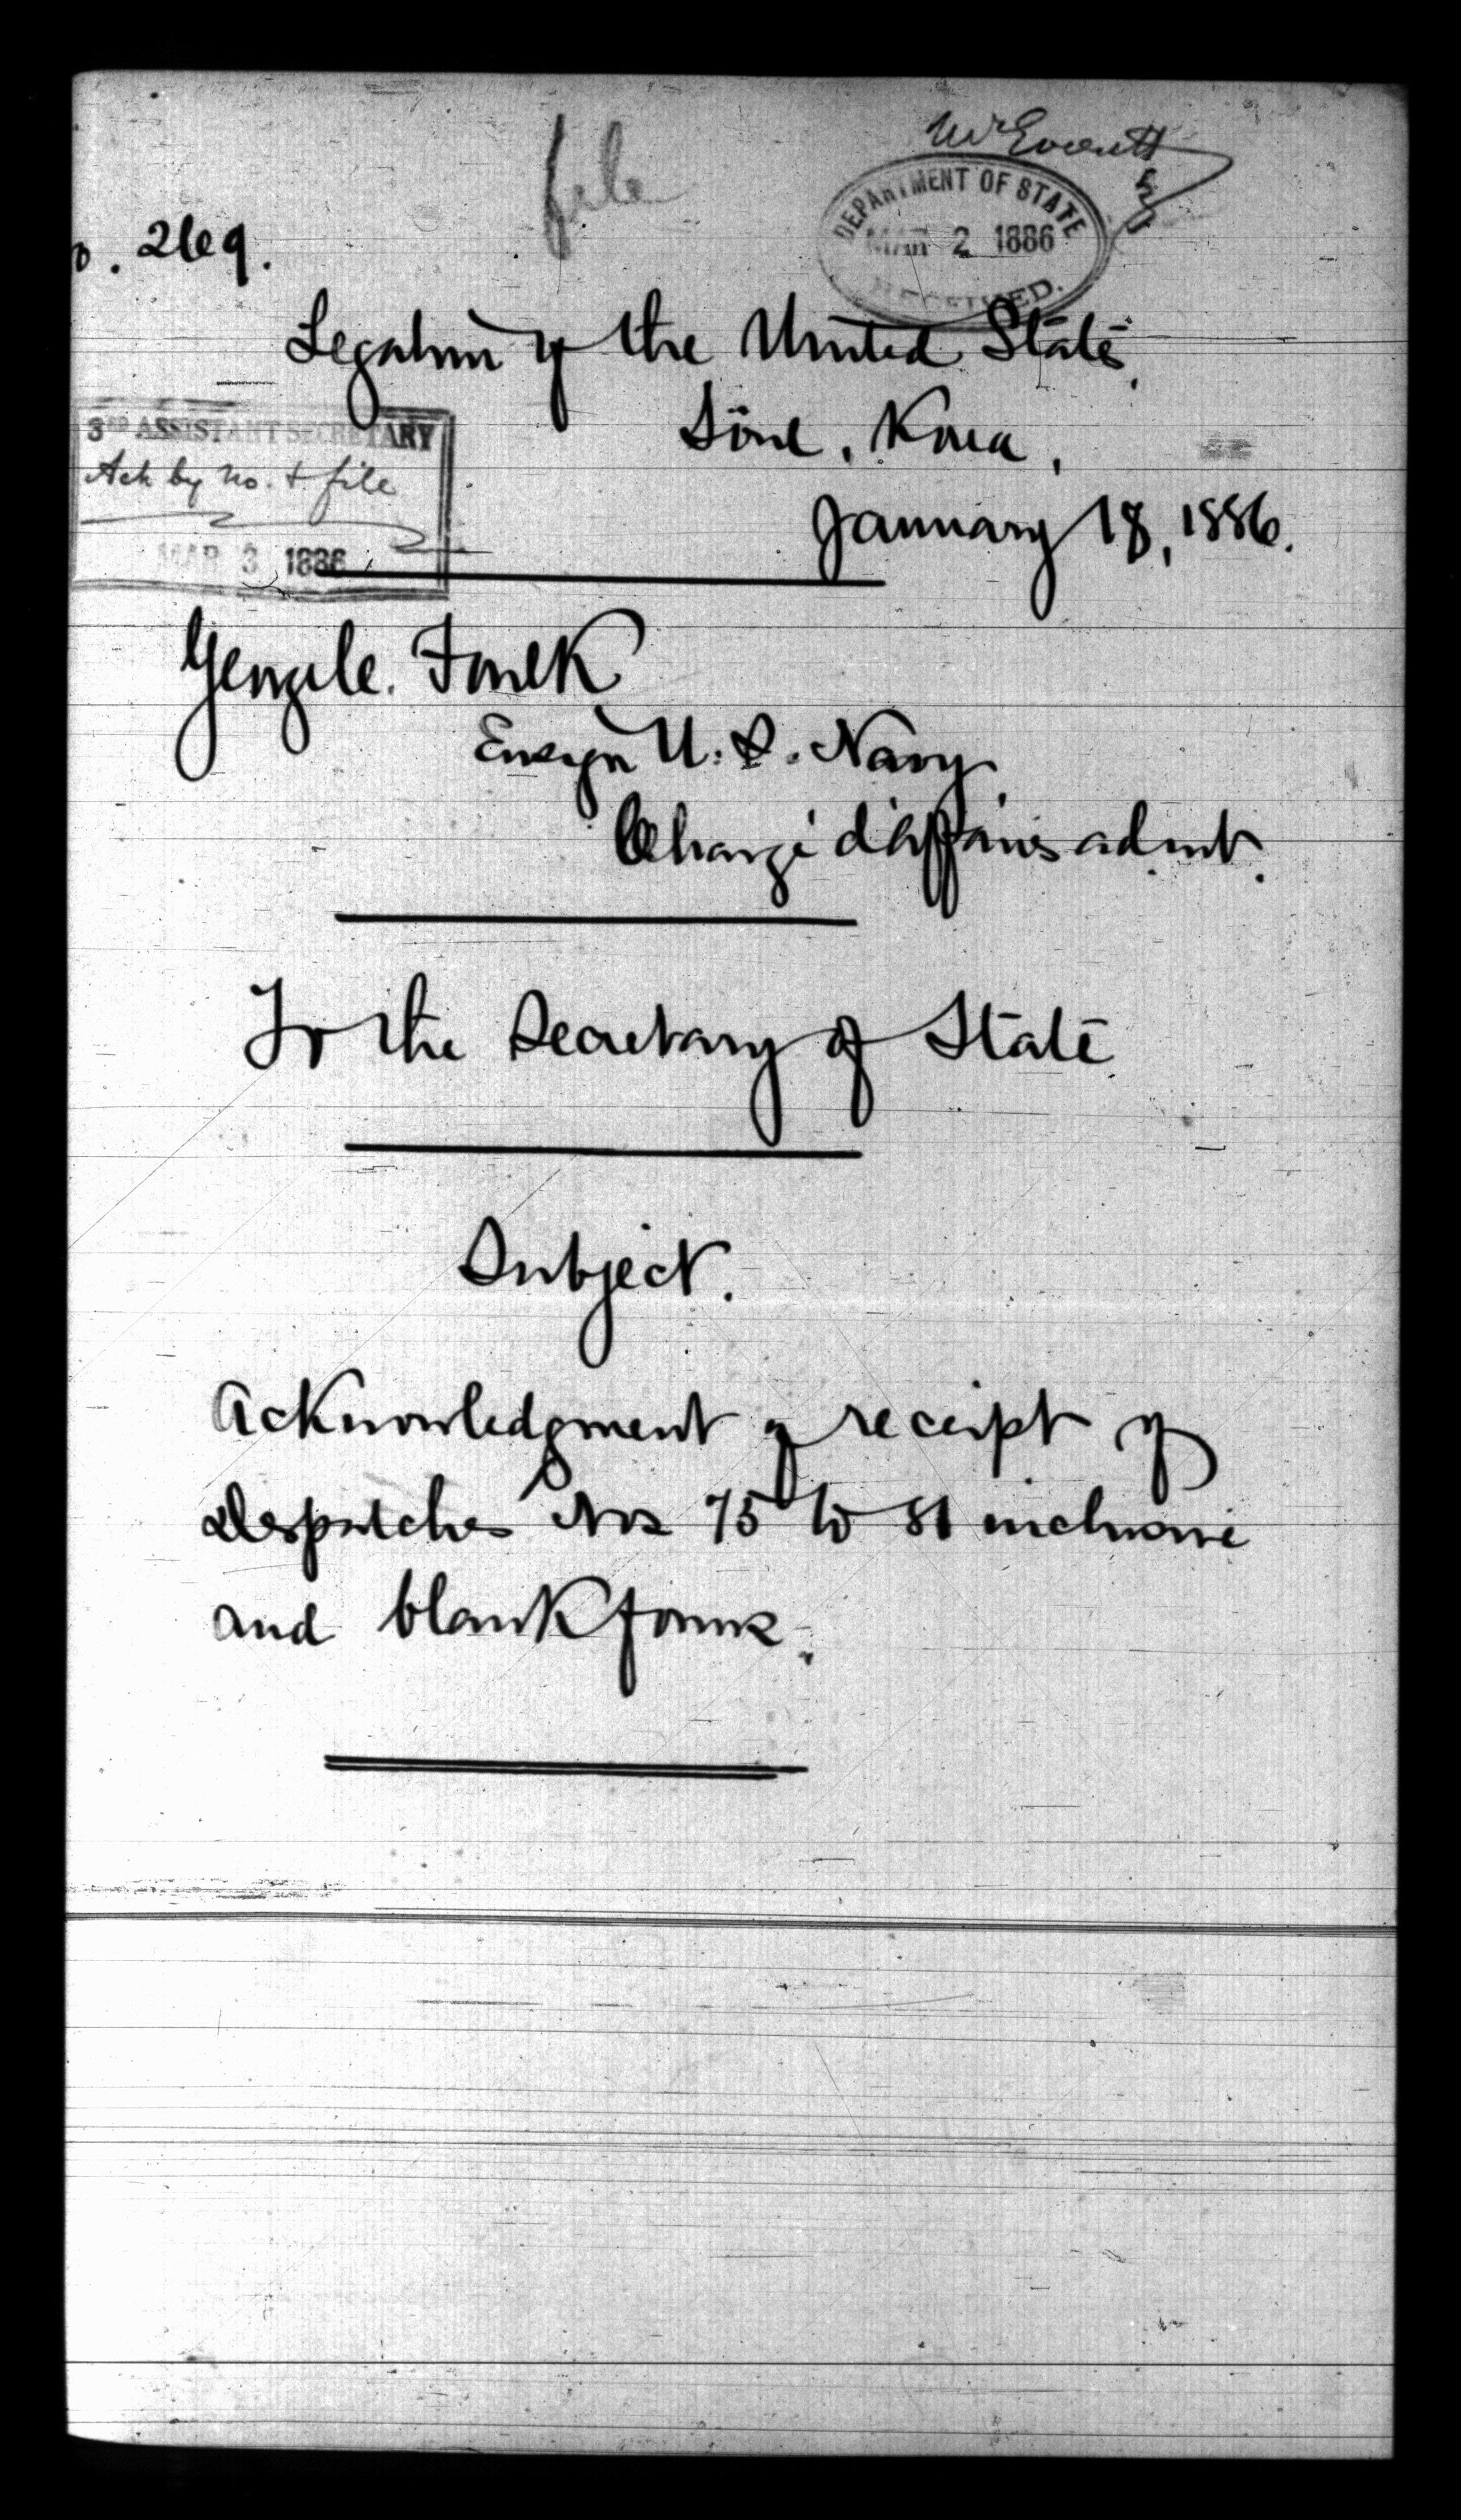 file
Mr Everett
DEPARTMENT OF STATE
MAR 2 1886
RECEIVED.
o. 269.
Legation of the United States,
Söul, Korea,
3RD ASSISTANT SECRETARY
Ack by no. & file
January 18, 1886.
MAR 3 1886
George C. Foulk
Ensign U.S. Navy,
Chargé d'affaires ad int.
To the Secretary of State.
Subject.
Acknowledgment of receipt of
despatches Nos 75 to 81 inclusive
and blank forms.